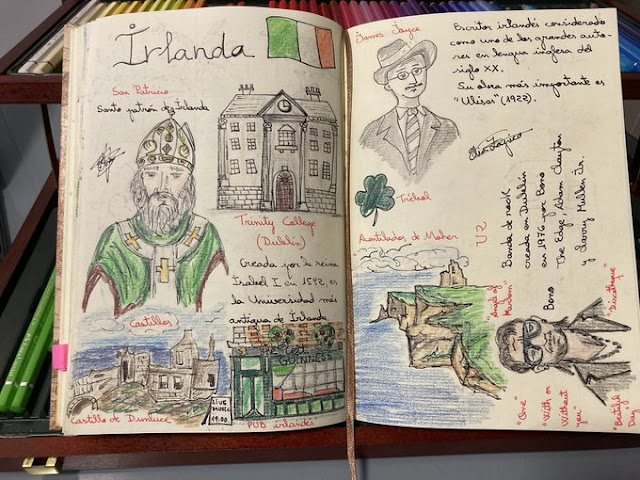 Irlanda
San Patricio
Santo patrón de Irlanda
Trinity College
(Dublín)
Creada por la reina
Isabel I en 1592, es
la Universidad más
antigua de Irlanda
Castillos
Castillo de Dunluce
LIVE
MUSIC
19:00
GUINNESS
PUB irlandés
James Joyce
Escritor irlandés considerado
como uno de los grandes auto-
res en lengua inglesa del
siglo XX.
Su obra más importante es
"Ulises" (1922).
Trébol
Acantilados de Moher
U2
Banda de rock
creada en Dublín
en 1976 por Bono
The Edge, Adam Clayton
y Larry Mullen Jr.
"Angel of
Harlem"
Bono
"Discotheque"
"One"
"With or
Without
you"
"Beautiful
Day"